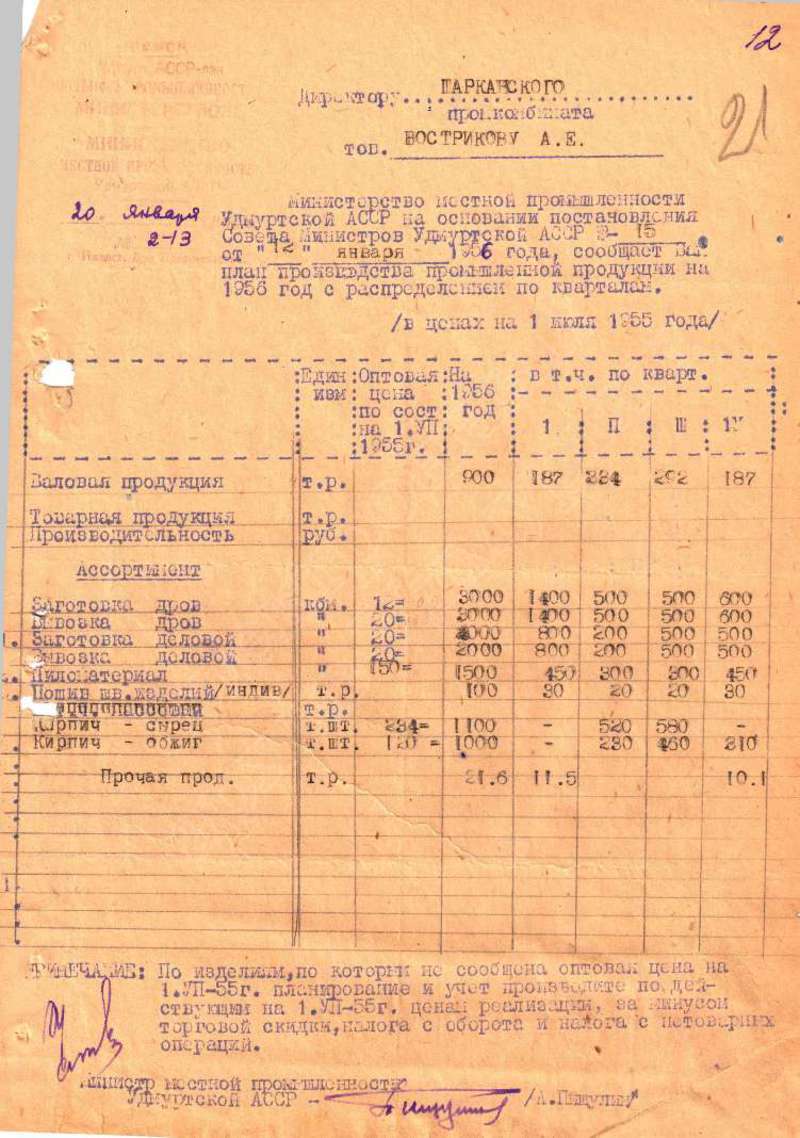 12
21
Директору ШАРКАНСКОГО
промкомбината
тов. ВОСТРИКОВУ А.Е.
20 января
2-13
Министерство местной промышленности
Удмуртской АССР на основании постановления
Совета Министров Удмуртской АССР 15
от "12" января 1956 года, сообщает Вам
план производства промышленной продукции на
1956 год с распределением по кварталам.
/в ценах на 1 июля 1955 года/
:Един:Оптовая:На : в т.ч. по кварт.
изм : цена :1956
:по сост: год
:на 1.УП : 1 : П : Ш : 1У
1955г.
Валовая продукция т.р. 900 187 234 292 187
Товарная продукция т.р.
Производительность руб.
Ассортимент
Заготовка дров кбм. 12= 3000 1400 500 500 600
Вывозка дров " 20= 3000 1400 500 500 600
Заготовка деловой " 20= 800 200 500 500
Вывозка деловой " 20= 2000 800 200 500 500
Пиломатериал " 150= 1500 450 300 300 450
Пошив шв.изделий/индив/ т.р. 100 30 20 20 30
т.р.
Кирпич - сырец т.шт. 234= 1100 - 520 580 -
Кирпич - обжиг т.шт. 120 = 1000 - 230 460 310
Прочая прод. т.р. 21.6 11.5 10.1
ПРИМЕЧАНИЕ: По изделиям,по которым не сообщена оптовая цена на
1.УП-55г. планирование и учет производите по дей-
ствующим на 1.УП-55г. ценам реализации, за минусом
торговой скидки,налога с оборота и налога с нетоварных
операций.
Министр местной промышленности
Удмуртской АССР - /А.Пищулин/